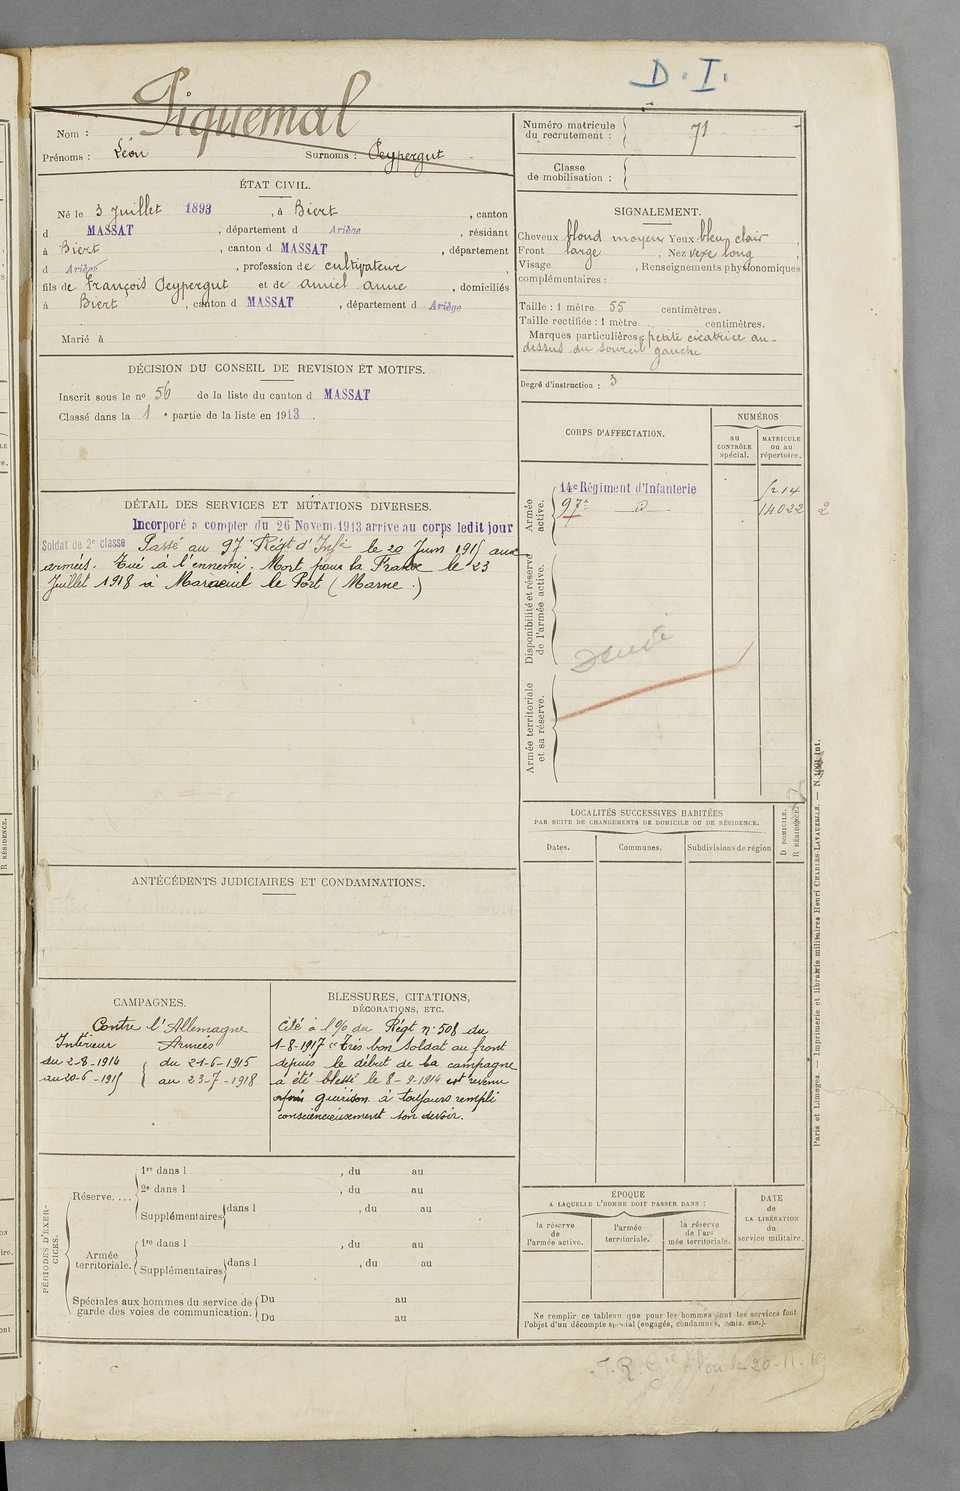 D. I.
Piquemal
Nom :
Prénoms : Léon Surnoms : Peypergut
ÉTAT CIVIL.
Né le 3 Juillet 1893 , à Biert , canton
d MASSAT , département d Ariège , résidant
à Biert , canton d MASSAT , département
d Ariège , profession de cultivateur ,
fils de François Peypergut et de Amiel Anne , domiciliés
à Biert , canton d MASSAT , département d Ariège
Marié à
DÉCISION DU CONSEIL DE REVISION ET MOTIFS.
Inscrit sous le nº 56 de la liste du canton d MASSAT
Classé dans la 1 e partie de la liste en 1913 .
DÉTAIL DES SERVICES ET MUTATIONS DIVERSES.
Incorporé a compter du 26 Novem. 1913 arrive au corps ledit jour
Soldat de 2e classe Passé au 97e Régt d'Infie le 20 Juin 1915 aux
armées. Tué à l'ennemi. Mort pour la France le 23
Juillet 1918 à Mareuil le Port (Marne.)
ANTÉCÉDENTS JUDICIAIRES ET CONDAMNATIONS.
CAMPAGNES.
Contre l'Allemagne
Intérieur Armées
du 2-8-1914 du 21-6-1915
au 20-6-1915 au 23-7-1918
BLESSURES, CITATIONS,
DÉCORATIONS, ETC.
Cité à l'% du Régt n: 508 du
1-8-1917 "très bon soldat au front
depuis le début de la campagne
a été blessé le 8-9-1914 est revenu
après guérison a toujours rempli
consciencieusement son devoir.
PÉRIODES D'EXER-
CICES.
Réserve. ...
1re dans l , du au
2e dans l , du au
Supplémentaires dans l , du au
Armée
territoriale.
1re dans l , du au
Supplémentaires dans l , du au
Spéciales aux hommes du service de
garde des voies de communication.
Du au
Du au
Numéro matricule
du recrutement : 71
Classe
de mobilisation :
SIGNALEMENT.
Cheveux blond moyen Yeux bleu clair
Front large , Nez vexe long ,
Visage , Renseignements physionomiques
complémentaires :
Taille : 1 mètre 55 centimètres.
Taille rectifiée : 1 mètre centimètres.
Marques particulières : petite cicatrice au-
dessus du sourcil gauche
Degré d'instruction : 3
CORPS D'AFFECTATION.
NUMÉROS
au
CONTRÔLE
spécial.
MATRICULE
ou au
répertoire.
Armée
active.
14e Régiment d'Infanterie 5214
97e d 14022 2
Disponibilité et réserve
de l'armée active.
Armée territoriale
et sa réserve.
LOCALITÉS SUCCESSIVES HABITÉES
PAR SUITE DE CHANGEMENTS DE DOMICILE OU DE RÉSIDENCE.
Dates. Communes. Subdivisions de région
D DOMICILE.
R RÉSIDENCE.
ÉPOQUE
A LAQUELLE L'HOMME DOIT PASSER DANS :
la réserve
de
l'armée active.
l'armée
territoriale.
la réserve
de l'ar-
mée territoriale.
DATE
de
LA LIBÉRATION
du
service militaire.
Ne remplir ce tableau que pour les hommes dont les services font
l'objet d'un décompte spécial (engagés, condamnés, omis, etc.).
Paris et Limoges. — Imprimerie et librairie militaires Henri CHARLES-LAVAUZELLE. — N